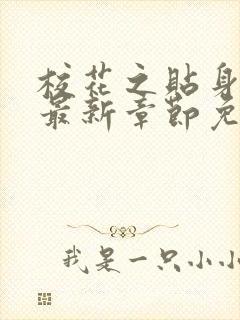 校花之贴身
最新章节免
我是一只小小